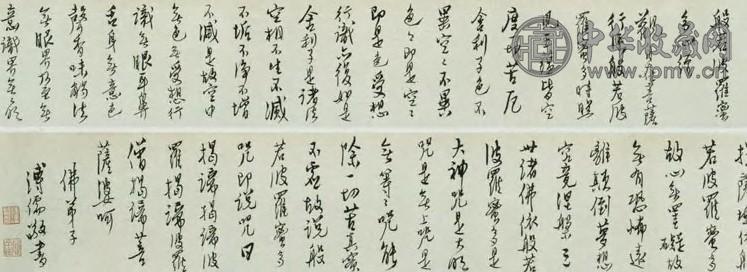 般若波羅蜜
多心經
觀自在菩薩
行深般若波
羅蜜多時照
見五蘊皆空
度一切苦厄
舍利子色不
異空〻不異
色〻即是空〻
即是色受想
行識亦復如是
舍利子是諸法
空相不生不滅
不垢不淨不增
不減是故空中
無色無受想行
識無眼耳鼻
舌身無意色
聲香味觸法
無眼界乃至無
意識界無無
提薩埵依般
若波羅蜜多
故心無罣礙故
無有恐怖遠
離顛倒夢想
究竟涅槃三
世諸佛依般若
波羅蜜多是
大神咒是大明
咒是無上咒是
無等〻咒能
除一切苦真實
不虛故說般
若波羅蜜多
咒即說咒曰
揭諦揭諦波
羅揭諦波羅
僧揭諦菩
薩婆訶
佛弟子
溥儒敬書
中华收藏网
www.jpmv.com